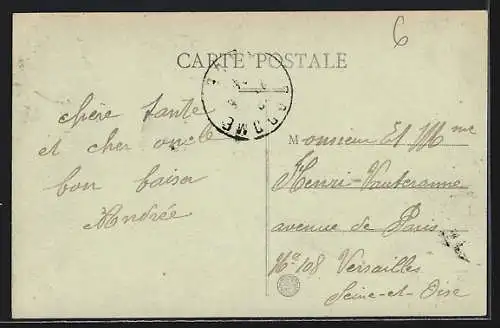 6
CARTE POSTALE
DROME
chère tante
et cher oncle
bon baiser
Andrée
Monsieur Et Mme
Henri
avenue de Paris
No 108 Versailles
Seine-et-Oise